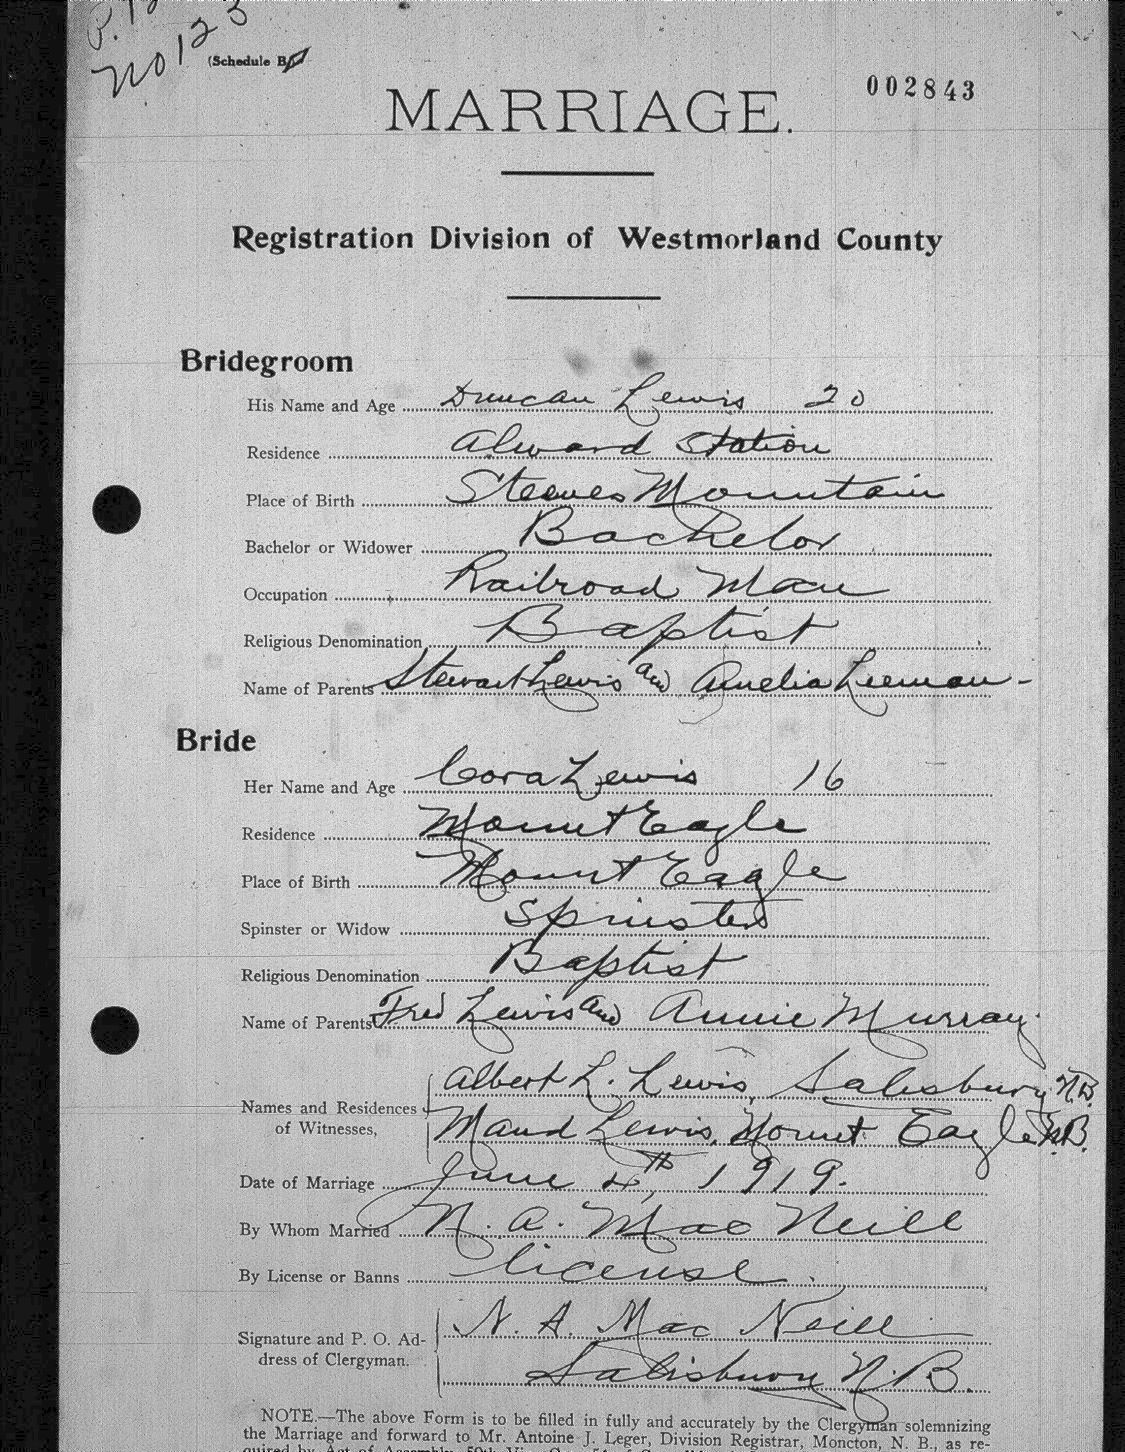 No 123
(Schedule B)
002843
MARRIAGE.
Registration Division of Westmorland County
Bridegroom
His Name and Age Duncan Lewis 20
Residence Alward Station
Place of Birth Steeves Mountain
Bachelor or Widower Bachelor
Occupation Railroad Man
Religious Denomination Baptist
Name of Parents Stewart Lewis and Amelia Leeman
Bride
Her Name and Age Cora Lewis 16
Residence Mount Eagle
Place of Birth Mount Eagle
Spinster or Widow Spinster
Religious Denomination Baptist
Name of Parents Fred Lewis and Annie Murray
Names and Residences of Witnesses, Albert L. Lewis, Salisbury N.B.
Maud Lewis, Mount Eagle N.B.
Date of Marriage June 4th, 1919.
By Whom Married N. A. MacNeill
By License or Banns license.
Signature and P. O. Address of Clergyman. N. A. MacNeill
Salisbury N.B.
NOTE.—The above Form is to be filled in fully and accurately by the Clergyman solemnizing
the Marriage and forward to Mr. Antoine J. Leger, Division Registrar, Moncton, N. B., as re-